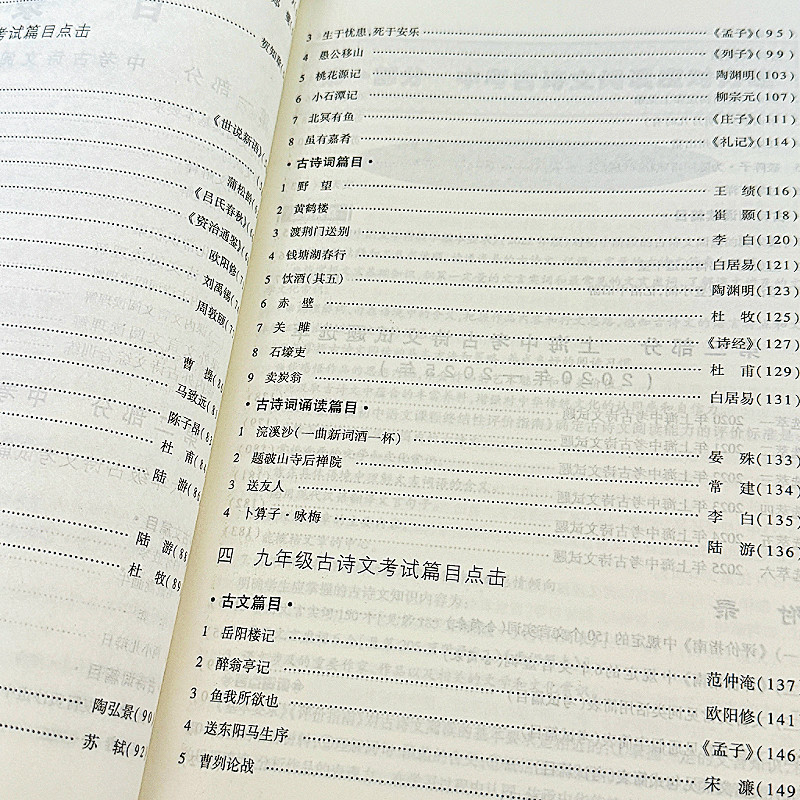 考试篇目点击
贺知章
《世说新语》(
蒲松龄(
《吕氏春秋》(
《资治通鉴》(
欧阳修(
刘禹锡(
周敦颐(
曹 操(
马致远(
陈子昂(
杜 甫(
陆 游(
陆 游(
杜 牧(
陶弘景(90
苏 轼(92
3 生于忧患,死于安乐 《孟子》(95)
4 愚公移山 《列子》(99)
5 桃花源记 陶渊明(103)
6 小石潭记 柳宗元(107)
7 北冥有鱼 《庄子》(111)
8 虽有嘉肴 《礼记》(114)
·古诗词篇目·
1 野 望 王 绩(116)
2 黄鹤楼 崔 颢(118)
3 渡荆门送别 李 白(120)
4 钱塘湖春行 白居易(121)
5 饮酒(其五) 陶渊明(123)
6 赤 壁 杜 牧(125)
7 关 雎 《诗经》(127)
8 石壕吏 杜 甫(129)
9 卖炭翁 白居易(131)
·古诗词诵读篇目·
1 浣溪沙(一曲新词酒一杯) 晏 殊(133)
2 题破山寺后禅院 常 建(134)
3 送友人 李 白(135)
4 卜算子·咏梅 陆 游(136)
四 九年级古诗文考试篇目点击
·古文篇目·
1 岳阳楼记 范仲淹(137)
2 醉翁亭记 欧阳修(141)
3 鱼我所欲也 《孟子》(146
4 送东阳马生序 宋 濂(149
5 曹刿论战